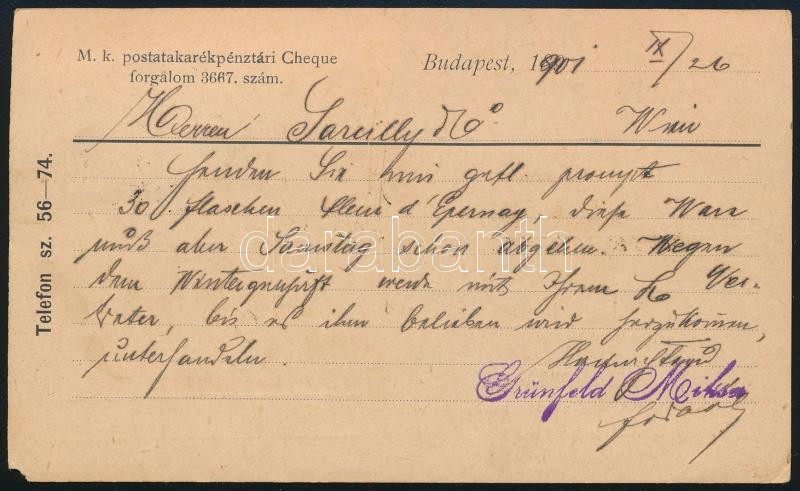 M. k. postatakarékpénztári Cheque
forgalom 3667. szám.
Budapest, 1901 IX/26
Telefon sz. 56—74.
Herren Sareilly & Co Wien
Senden Sie mir gefl. prompt
30 flaschen fleur d'Epernay diese Ware
muß aber Samstag schon abgehen. Wegen
dem Wintergeschäft werde mit Ihrem H. Ver-
treter, bis es ihm belieben wird herzukommen,
unterhandeln.
Grünfeld Miksa
darabanth